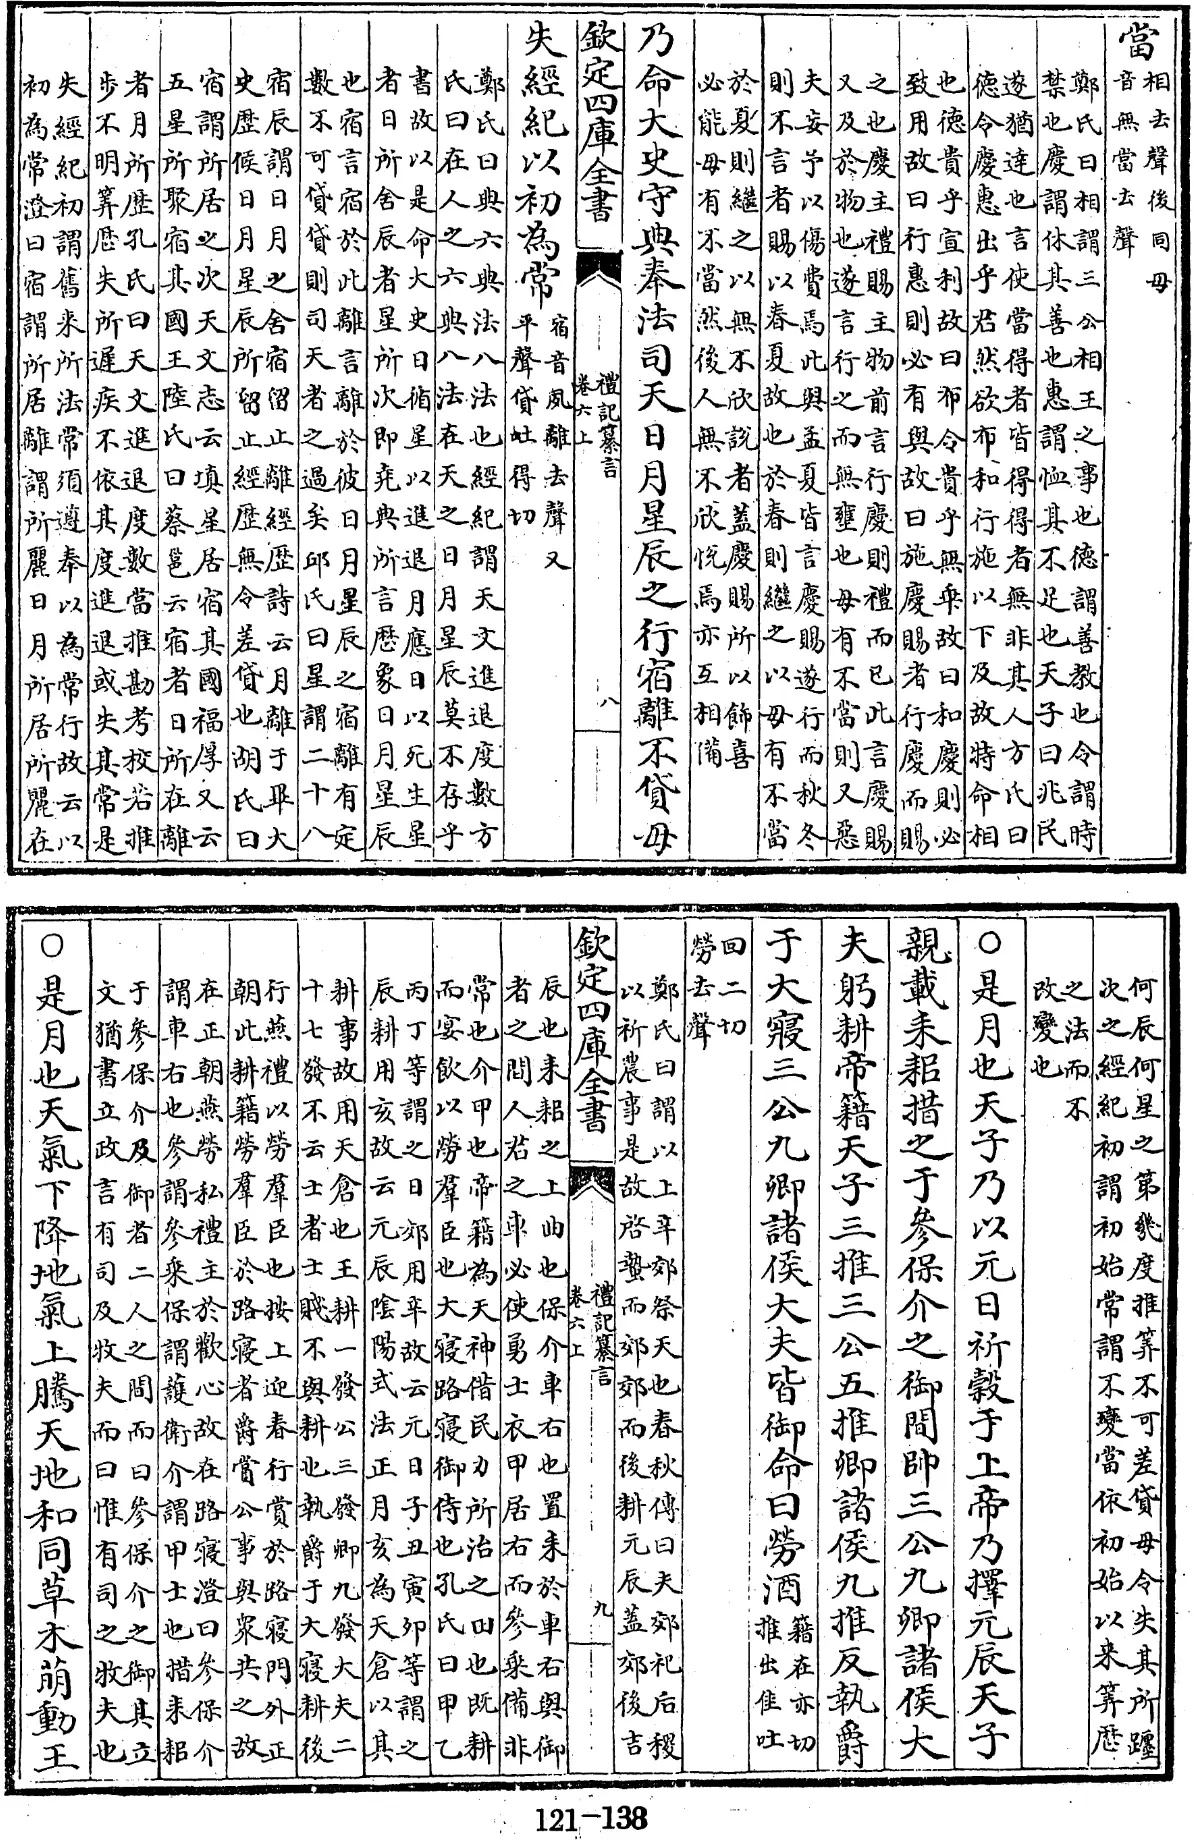 當
相去聲後同毋
音無當去聲
鄭氏曰相謂三公相王之事也德謂善教也令謂時
禁也慶謂休其善也惠謂恤其不足也天子曰兆民
遂猶達也言使當得者皆得得者無非其人方氏曰
德令慶惠出乎君然欲布和行施以下及故特命相
也德貴乎宣利故曰布令貴乎無乖故曰和慶則必
致用故曰行惠則必有與故曰施慶賜者行慶而賜
之也慶主禮賜主物前言行慶則禮而已此言慶賜
又及於物也遂言行之而無壅也毋有不當則又惡
夫妄予以傷費焉此與孟夏皆言慶賜遂行而秋冬
則不言者賜以春夏故也於春則繼之以毋有不當
於夏則繼之以無不欣說者蓋慶賜所以飾喜
必能毋有不當然後人無不欣悅焉亦互相備
乃命大史守典奉法司天日月星辰之行宿離不貸毋
欽定四庫全書
禮記纂言
卷六上
八
失經紀以初為常
宿音夙離去聲又
平聲貸吐得切
鄭氏曰典六典法八法也經紀謂天文進退度數方
氏曰在人之六典八法在天之日月星辰莫不存乎
書故以是命大史日循星以進退月應日以死生星
者日所舍辰者星所次即堯典所言厯象日月星辰
也宿言宿於此離言離於彼日月星辰之宿離有定
數不可貸貸則司天者之過矣邱氏曰星謂二十八
宿辰謂日月之舍宿留止離經歴詩云月離于畢大
史歴候日月星辰所留止經歴無令差貸也胡氏曰
宿謂所居之次天文志云填星居宿其國福厚又云
五星所聚宿其國王陸氏曰蔡邕云宿者日所在離
者月所歴孔氏曰天文進退度數當推勘考校若推
步不明筭厯失所遲疾不依其度進退或失其常是
失經紀初謂舊来所法常須遵奉以為常行故云以
初為常澄曰宿謂所居離謂所麗日月所居所麗在
何辰何星之第幾度推筭不可差貸毋令失其所躔
次之經紀初謂初始常謂不變當依初始以来筭厯
之法而不
改變也
○是月也天子乃以元日祈穀于上帝乃擇元辰天子
親載耒耜措之于參保介之御間帥三公九卿諸侯大
夫躬耕帝籍天子三推三公五推卿諸侯九推反執爵
于大寢三公九卿諸侯大夫皆御命曰勞酒
籍在亦切
推出隹吐
回二切
勞去聲
鄭氏曰謂以上辛郊祭天也春秋傳曰夫郊祀后稷
以祈農事是故啓蟄而郊郊而後耕元辰蓋郊後吉
欽定四庫全書
禮記纂言
卷六上
九
辰也耒耜之上曲也保介車右也置耒於車右與御
者之間人君之車必使勇士衣甲居右而參乘備非
常也介甲也帝籍為天神借民力所治之田也既耕
而宴飲以勞羣臣也大寢路寢御侍也孔氏曰甲乙
丙丁等謂之日郊用辛故云元日子丑寅卯等謂之
辰耕用亥故云元辰陰陽式法正月亥為天倉以其
耕事故用天倉也王耕一發公三發卿九發大夫二
十七發不云士者士賤不與耕也執爵于大寢耕後
行燕禮以勞羣臣也按上迎春行賞於路寢門外正
朝此耕籍勞羣臣於路寢者爵賞公事與衆共之故
在正朝燕勞私禮主於歡心故在路寢澄曰參保介
謂車右也參謂參乘保謂護衛介謂甲士也措耒耜
于參保介及御者二人之間而曰參保介之御其立
文猶書立政言有司及牧夫而曰惟有司之牧夫也
○是月也天氣下降地氣上騰天地和同草木萌動王
121-138